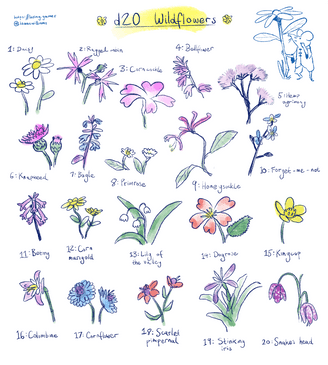 d20 Wildflowers
1: Daisy
2: Ragged robin
3: Corncockle
4: Bellflower
5: Hemp agrimony
6: Knapweed
7: Bugle
8: Primrose
9: Honeysuckle
10: Forget-me-not
11: Betony
12: Corn
marigold
13: Lily of
the valley
14: Dogrose
15: Kingcup
16: Columbine
17: Cornflower
18: Scarlet
pimpernel
19: Stinking
iris
20: Snake's head